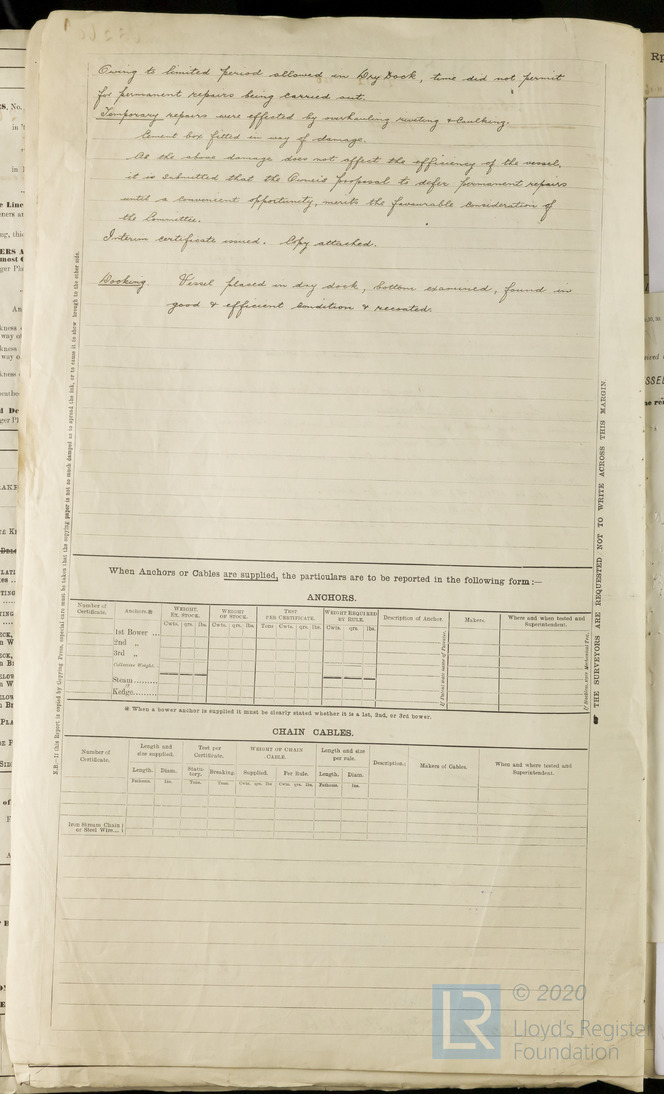 Owing to limited period allowed in Dry Dock, time did not permit
for permanent repairs being carried out.
Temporary repairs were effected by overhauling riveting & caulking.
Cement box fitted in way of damage.
As the above damage does not affect the efficiency of the vessel,
it is submitted that the Owner's proposal to defer permanent repairs
until a convenient opportunity, merits the favourable consideration of
the Committee.
Interim certificate issued. Copy attached.
Docking Vessel placed in dry dock, bottom examined, found in
good & efficient condition & recoated.
When Anchors or Cables are supplied, the particulars are to be reported in the following form:—
ANCHORS.
Number of Certificate. Anchors.* WEIGHT, EX. STOCK. WEIGHT OF STOCK. TEST PER CERTIFICATE. WEIGHT REQUIRED BY RULE. Description of Anchor. Makers. Where and when tested and Superintendent.
Cwts. qrs. lbs. Cwts. qrs. lbs. Tons Cwts. qrs. lbs. Cwts. qrs. lbs.
1st Bower ...
2nd „
3rd „
Collective Weight.
Stream.........
Kedge.........
* When a bower anchor is supplied it must be clearly stated whether it is a 1st, 2nd, or 3rd bower.
CHAIN CABLES.
Number of Certificate. Length and size supplied. Test per Certificate. WEIGHT OF CHAIN CABLE. Length and size per rule. Description. Makers of Cables. When and where tested and Superintendent.
Length. Diam. Statutory. Breaking. Supplied. Per Rule. Length. Diam.
Fathoms. Ins. Tons. Tons. Cwts. qrs. lbs. Cwts. qrs. lbs. Fathoms. Ins.
Iron Stream Chain
or Steel Wire...
THE SURVEYORS ARE REQUESTED NOT TO WRITE ACROSS THIS MARGIN
N.B.—If this Report is copied by Copying Press, especial care must be taken that the copying paper is not so much damped as to spread the ink, or to cause it to show through to the other side.
LR
© 2020
Lloyd's Register
Foundation